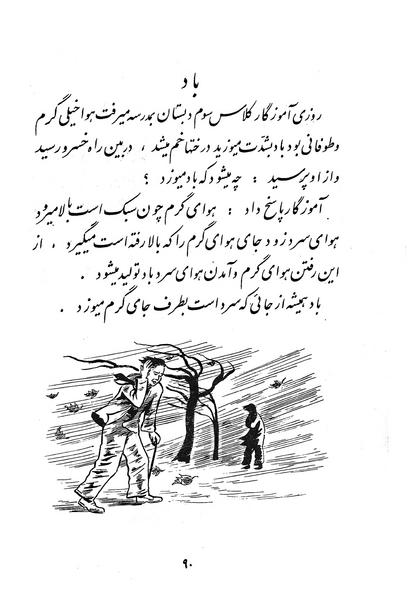 باد
روزی آموزگار کلاس سوم دبستان بمدرسه میرفت هوا خیلی گرم
و طوفانی بود باد بشدّت میوزید درختها خم میشد ، در بین راه خسرو رسید
و از او پرسید : چه میشود که باد میوزد ؟
آموزگار پاسخ داد : هوای گرم چون سبک است بالا میرود
هوای سرد زود جای هوای گرم را که بالا رفته است میگیرد ، از
این رفتن هوای گرم و آمدن هوای سرد باد تولید میشود .
باد همیشه از جائی که سرد است بطرف جای گرم میوزد .
۹۰